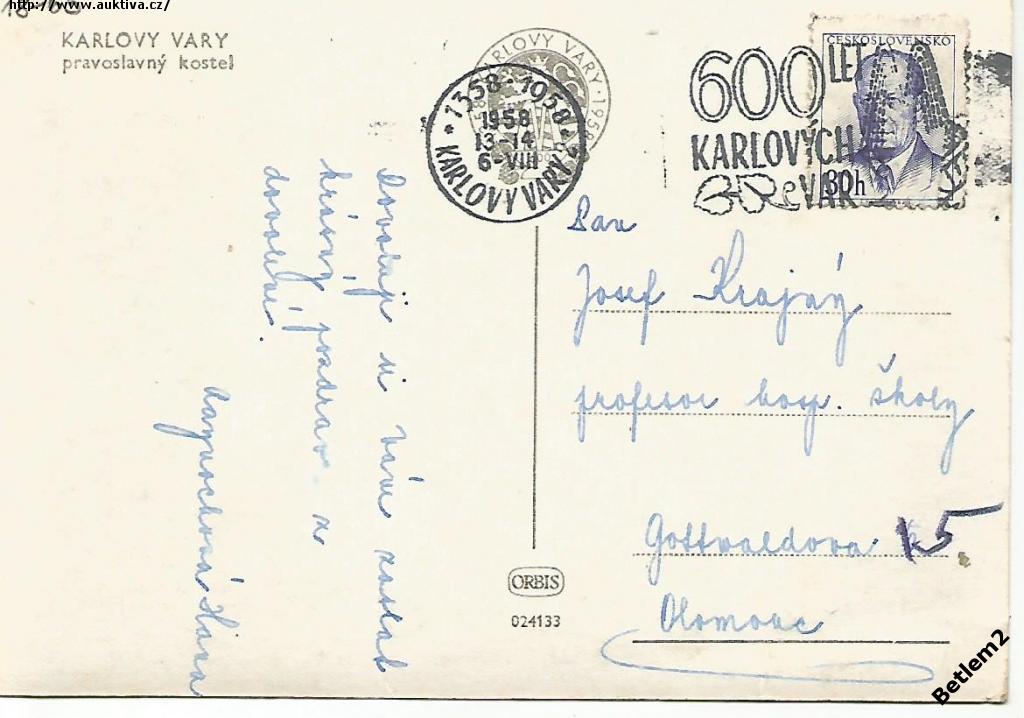 http://www.auktiva.cz/
KARLOVY VARY
pravoslavný kostel
KARLOVY VARY · 195
* 1358-1958 *
1958
13-14
6-VIII
KARLOVY VARY
600 LET
KARLOVÝCH
VAR
ČESKOSLOVENSKO
30h
Dovoluji si Vám zaslat
krásný pozdrav z
dovolené.
Hana
Pan
Josef Krajný
profesor hosp. školy
Gottwaldova č. 15
Olomouc
ORBIS
024133
Betlem2